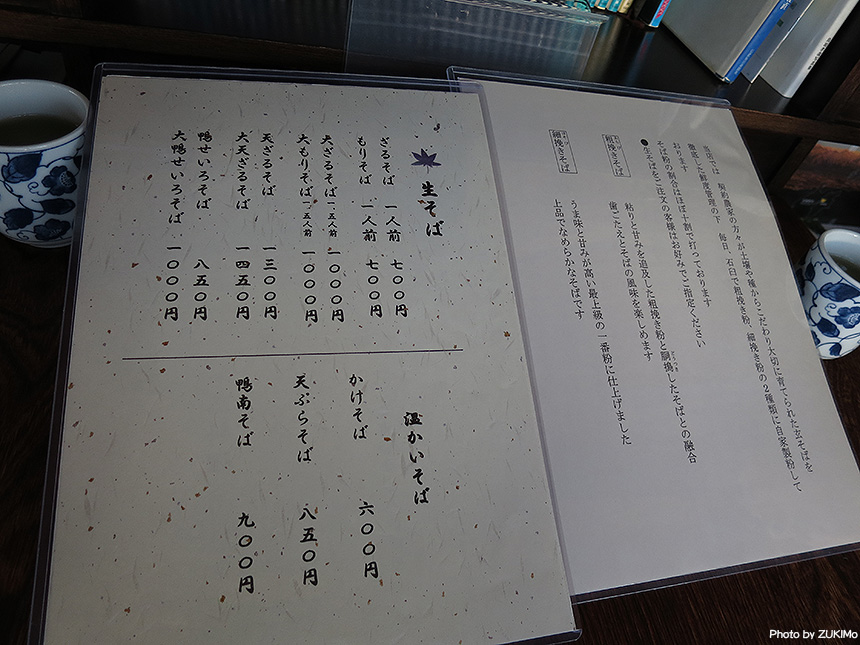 生そば
ざるそば 一人前 七〇〇円
もりそば 一人前 七〇〇円
大ざるそば 一.五人前 一〇〇〇円
大もりそば 一.五人前 一〇〇〇円
天ざるそば 一三〇〇円
大天ざるそば 一四五〇円
鴨せいろそば 八五〇円
大鴨せいろそば 一〇〇〇円
温かいそば
かけそば 六〇〇円
天ぷらそば 八五〇円
鴨南そば 九〇〇円
当店では 契約農家の方々が土壌や種からこだわり大切に育てられた玄そばを
徹底した鮮度管理の下 毎日、石臼で粗挽き粉、細挽き粉の2種類に自家製粉して
おります
そば粉の割合はほぼ十割で打っております
●生そばをご注文の客様はお好みでご指定ください
粗挽きそば 粘りと甘みを追及した粗挽き粉と胴搗したそばとの融合
歯ごたえとそばの風味を楽しめます
細挽きそば うま味と甘みが高い最上級の一番粉に仕上げました
上品でなめらかなそばです
Photo by ZUKIMo